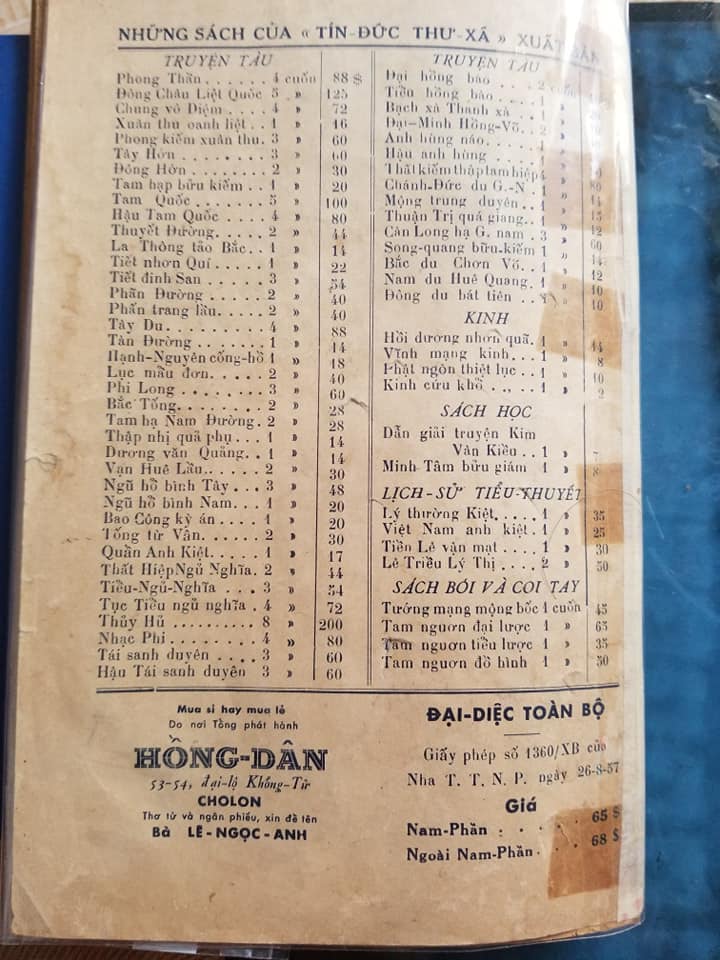 NHỮNG SÁCH CỦA « TÍN-ĐỨC THƯ-XÃ » XUẤT BẢN
TRUYỆN TÀU
Phong Thần . . . . . . 4 cuốn 88 $
Đông Châu Liệt Quốc 5 » 125
Chung vô Diệm . . . . 4 » 72
Xuân thu oanh liệt . . 1 » 16
Phong kiếm xuân thu. 3 » 60
Tây Hớn . . . . . . . . 3 » 60
Đông Hớn . . . . . . . 2 » 30
Tam hạp bửu kiếm . . 1 » 20
Tam Quốc . . . . . . . 5 » 100
Hậu Tam Quốc . . . . 4 » 80
Thuyết Đường. . . . . 2 » 44
La Thông tảo Bắc. . 1 » 14
Tiết nhơn Quí. . . . . 1 » 22
Tiết đinh San . . . . . 3 » 54
Phãn Đường . . . . . . 2 » 40
Phấn trang lầu. . . . . 2 » 40
Tây Du. . . . . . . . . 4 » 88
Tàn Đường . . . . . . . 1 » 14
Hạnh-Nguyên cống-hồ 1 » 18
Lục mẫu đơn. . . . . . 2 » 40
Phi Long . . . . . . . . 3 » 60
Bắc Tống. . . . . . . . 2 » 28
Tam hạ Nam Đường. 2 » 28
Thập nhị quả phụ . . . 1 » 14
Dương văn Quảng. . . 1 » 14
Vạn Huê Lầu. . . . . . 2 » 30
Ngũ hổ bình Tây . . . 3 » 48
Ngũ hổ bình Nam. . . 1 » 20
Bao Công kỳ án . . . . 1 » 20
Tống từ Vân. . . . . . 2 » 30
Quần Anh Kiệt. . . . . 1 » 17
Thất Hiệp Ngũ Nghĩa. 2 » 44
Tiểu-Ngũ-Nghĩa . . . 3 » 54
Tục Tiểu ngũ nghĩa . 4 » 72
Thủy Hử . . . . . . . . 8 » 200
Nhạc Phi . . . . . . . . 4 » 80
Tái sanh duyên . . . . 3 » 60
Hậu Tái sanh duyên 3 » 60
TRUYỆN TÀU
Đại hồng bào . . . 2 cuốn
Tiểu hồng bào . . . 1 »
Bạch xà Thanh xà . . 1 »
Đại-Minh Hồng-Võ. . 2 »
Anh hùng náo. . . . . 1 »
Hậu anh hùng . . . . . 1 »
Thất kiếm thập tam hiệp 4 »
Chánh-Đức du G.-N . 1 » 80
Mộng trung duyên . . 1 » 14
Thuận Trị quá giang. . 1 » 15
Càn Long hạ G. nam . 3 » 42
Song-quang bữu-kiếm 1 » 60
Bắc du Chơn Võ. . . 1 » 14
Nam du Huê Quang. 1 » 12
Đông du bát tiên . . 1 » 10
10
KINH
Hồi dương nhơn quả. 1 » 14
Vĩnh mạng kinh. . . 1 » 8
Phật ngôn thiệt lục . . 1 » 10
Kinh cứu khổ . . . . . 1 » 2
SÁCH HỌC
Dẫn giải truyện Kim
Vân Kiều . . 1 » 7
Minh Tâm bửu giám . 1 » 8
LỊCH-SỬ TIỂU-THUYẾT
Lý thường Kiệt. . . . . 1 » 35
Việt Nam anh kiệt . 1 » 25
Tiền Lê vận mạt . . . . 1 » 30
Lê Triều Lý Thị . . . . 2 » 50
SÁCH BÓI VÀ COI TAY
Tướng mạng mộng bốc 1 cuốn 45
Tam nguơn đại lược 1 » 65
Tam nguơn tiểu lược 1 » 35
Tam nguơn đồ hình 1 » 50
Mua sỉ hay mua lẻ
Do nơi Tổng phát hành
HỒNG-DÂN
53-54, đại-lộ Khổng-Tử
CHOLON
Thơ từ và ngân phiếu, xin đề tên
Bà LÊ-NGỌC-ANH
ĐẠI-DIỆC TOÀN BỘ
Giấy phép số 1360/XB của
Nha T. T. N. P. ngày 26-8-57
Giá
Nam-Phần : . . . . 65 $
Ngoài Nam-Phần . . . 68 $